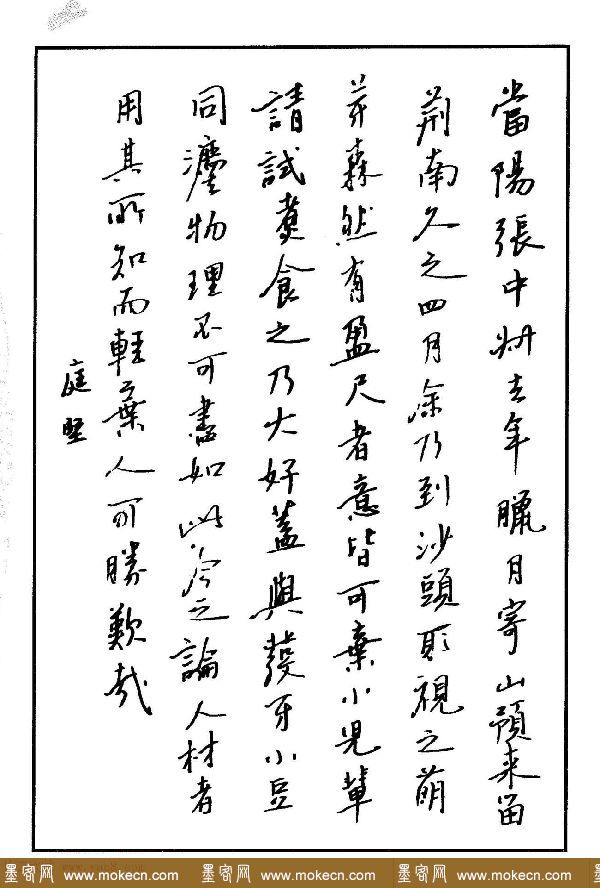 當陽張中叔去年臘月寄山預來留
荊南久之四月餘乃到沙頭取視之萌
芽森然有盈尺者意皆可棄小兒輩
請試煮食之乃大好蓋與發牙小豆
同灋物理不可盡如此今之論人材者
用其所知而輕棄人可勝歎哉
庭堅
墨客网 www.mokecn.com 墨客网 www.mokecn.com 墨客网 www.mokecn.com